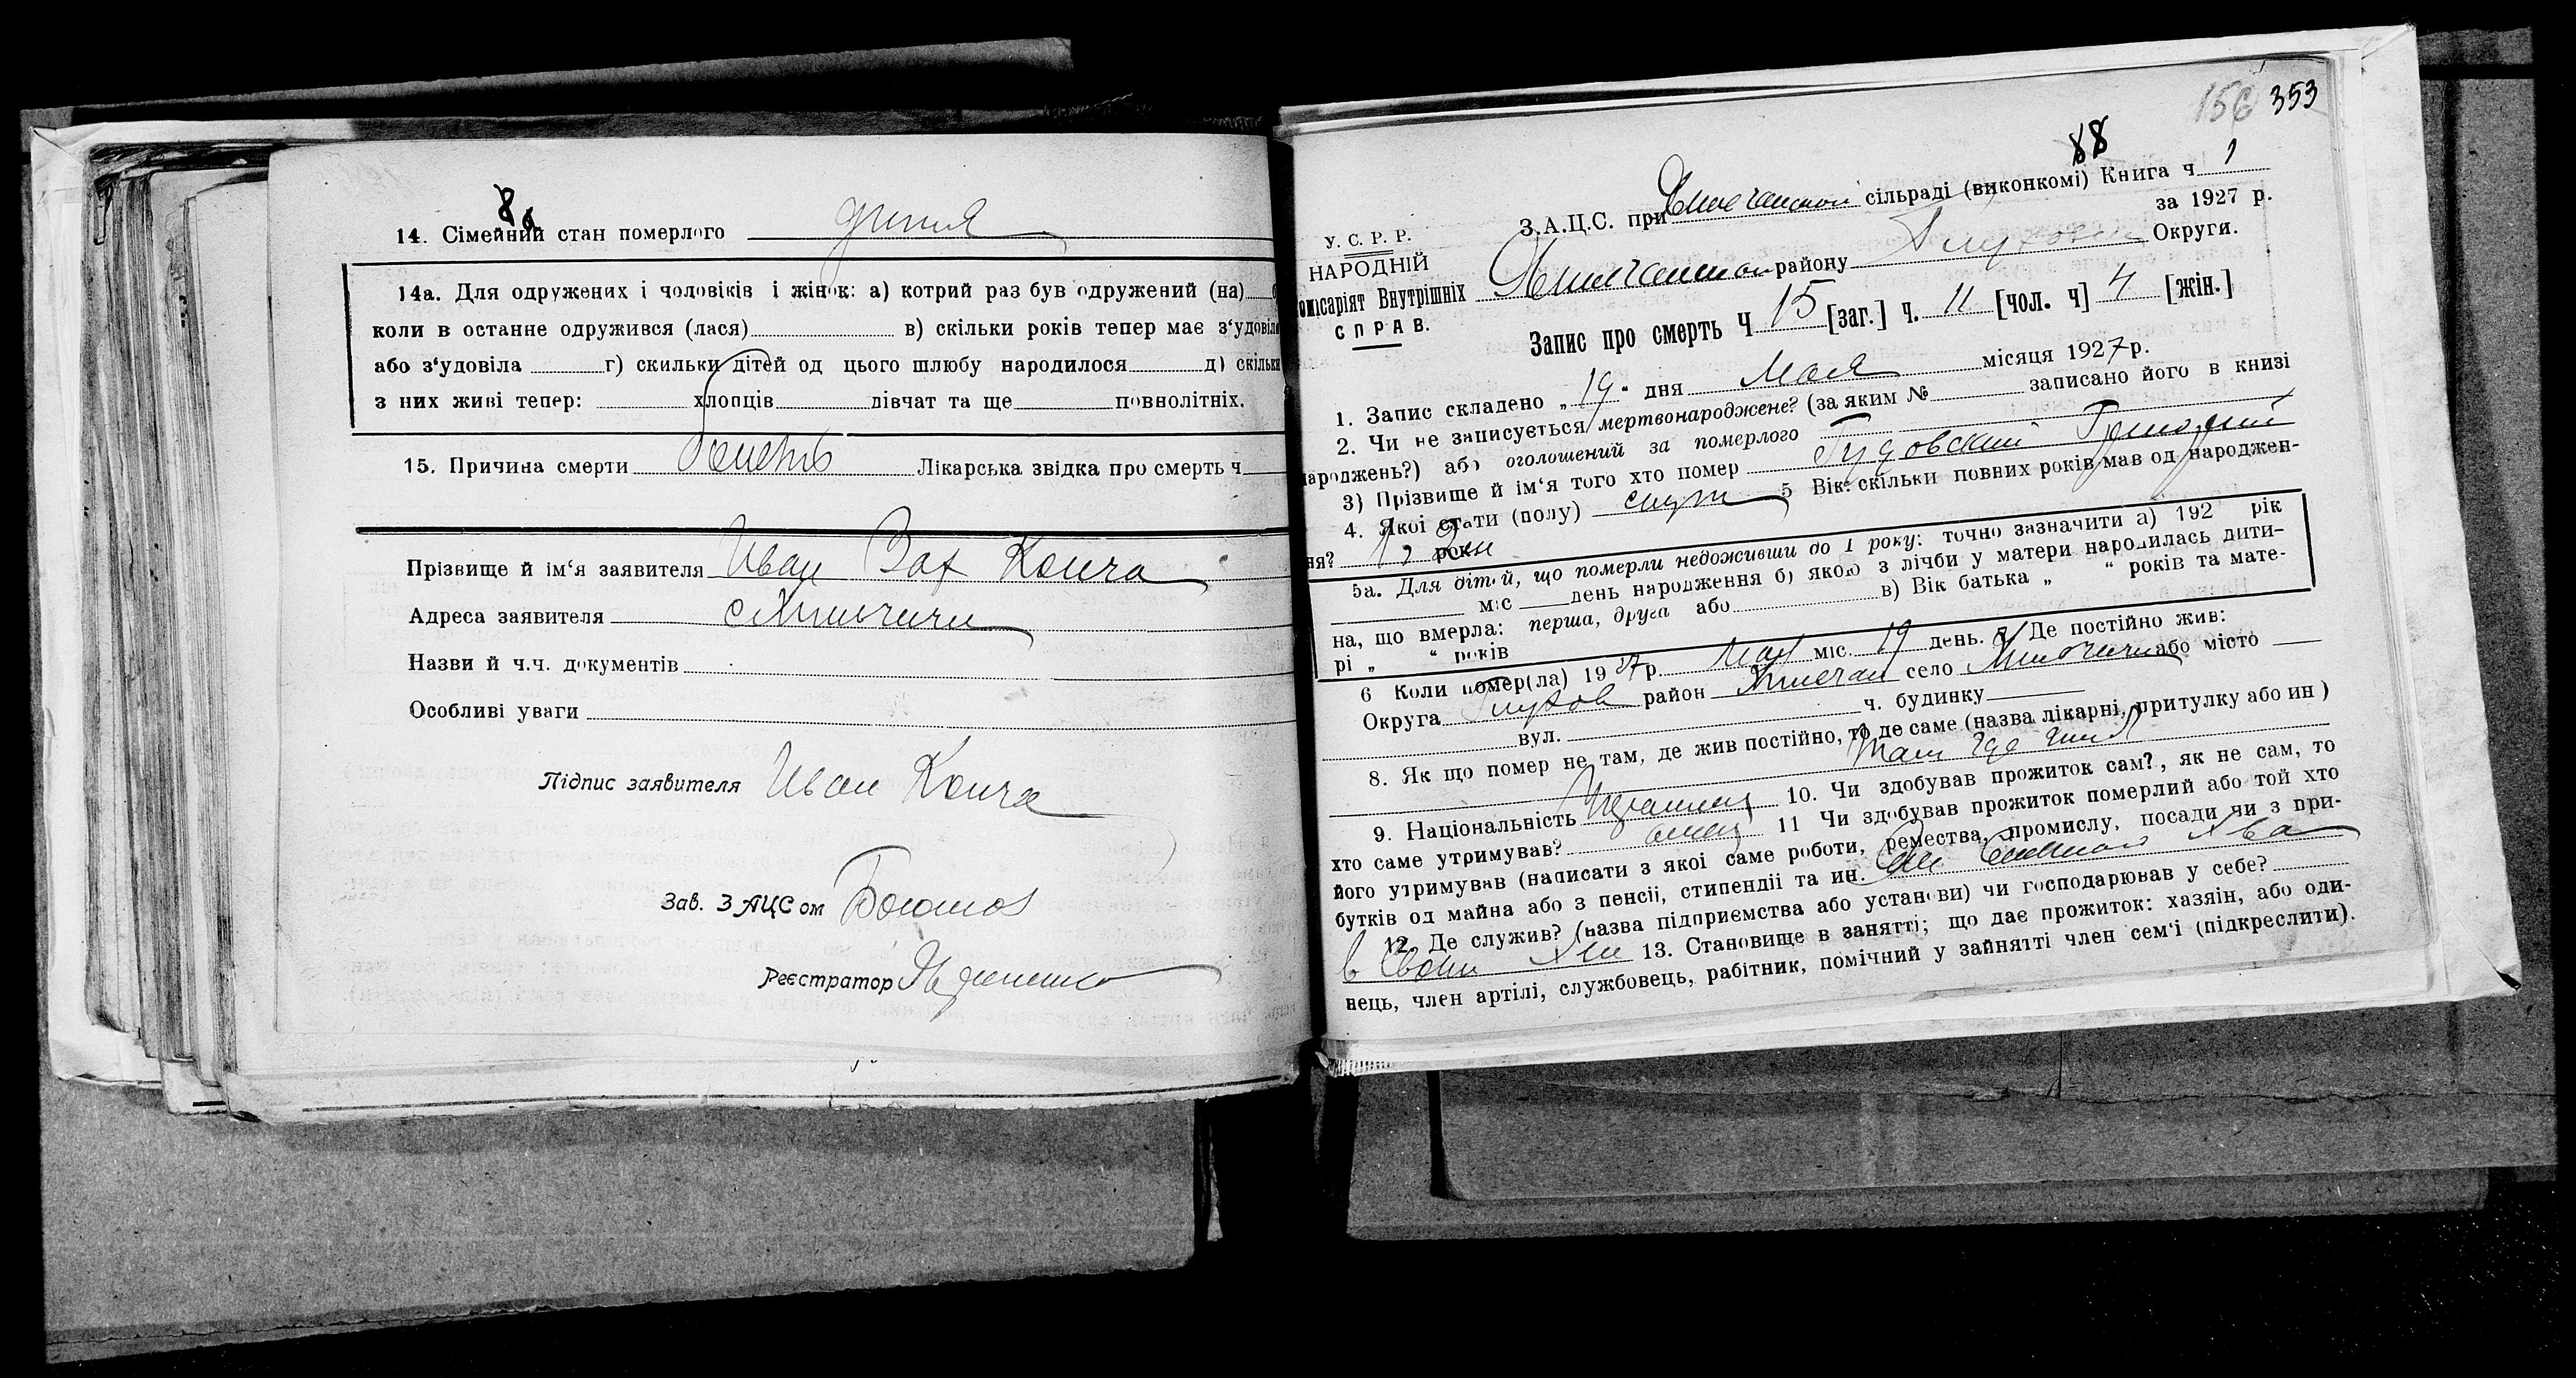 14. Сімейний стан померлого дитя
14а. Для одружених і чоловіків і жінок: а) котрий раз був одружений (на)
коли в останнє одружився (лася) в) скільки років тепер має з‘удовіл
або з‘удовіла г) скильки дітей од цього шлюбу народилося д) скільки
з них живі тепер: хлопців дівчат та ще повнолітніх.
15. Причина смерти Лікарська звідка про смерть ч
Прізвище й ім‘я заявителя Иван Зах Конча
Адреса заявителя
Назви й ч.ч. документів
Особливі уваги
Підпис заявителя Иван Конча
Зав. ЗАЦСом
Реєстратор
156 353
88
У. С. Р. Р.
НАРОДНІЙ
омісаріят Внутрішніх
СПРАВ.
З.А.Ц.С. при сільраді (виконкомі) Книга ч 1
за 1927 р.
району Округи.
Запис про смерть Ч 15 [заг.] ч. 11 [чол. ч] 4 [жін.]
1. Запис складено „19“ дня Мая місяця 1927 р.
2. Чи не записується мертвонароджене? (за яким № записано його в книзі
народжень?) або оголошений за померлого
3) Прізвище й ім‘я того хто помер Гудовский Григорий
4. Якої стати (полу) 5 Вік: скільки повних років мав од народжен-
ня? роки
5а. Для дітей, що померли недоживши до 1 року: точно зазначити а) 192 рік
міс день народження б) якою з лічби у матери народилась дити-
на, що вмерла: перша, друга або в) Вік батька „ “ років та мате-
рі „ “ років
6 Коли помер(ла) 1927 р. Мая міс. 19 день. 7 Де постійно жив:
Округа Глухов район село або місто
вул. ч. будинку
8. Як що помер не там, де жив постійно, то де саме (назва лікарні, притулку або ин)
там где жил
9. Національність 10. Чи здобував прожиток сам?, як не сам, то
хто саме утримував? отец 11 Чи здобував прожиток померлий або той хто
його утримував (написати з якої саме роботи, ремества, промислу, посади чи з при-
бутків од майна або з пенсії, стипендії та ин.
12. Де служив? (назва підприємства або установи) чи господарював у себе?
в своем 13. Становище в занятті; що дає прожиток: хазяїн, або оди-
нець, член артілі, службовець, рабітник, помічний у зайнятті член сем‘ї (підкреслити).